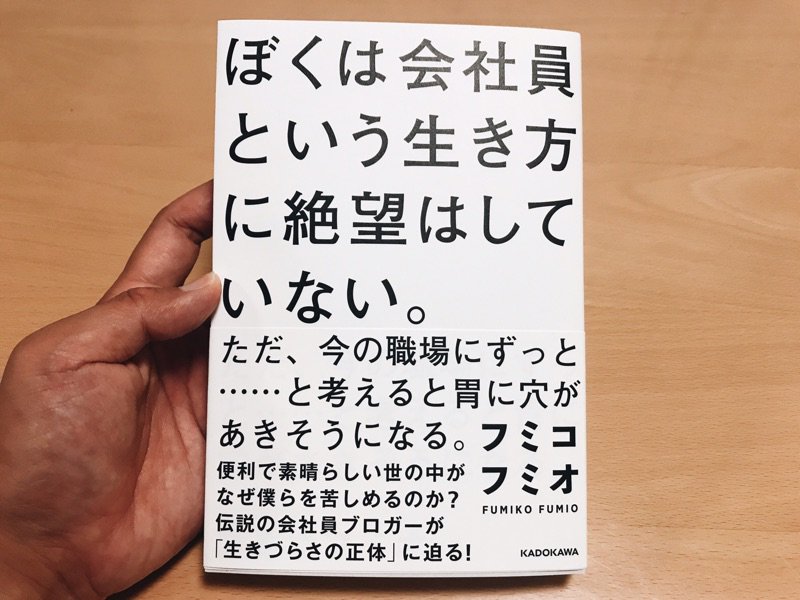 ぼくは会社員
という生き方
に絶望はして
いない。
ただ、今の職場にずっと
……と考えると胃に穴が
あきそうになる。
フミコ
フミオ
FUMIKO FUMIO
便利で素晴らしい世の中が
なぜ僕らを苦しめるのか？
伝説の会社員ブロガーが
「生きづらさの正体」に迫る！
KADOKAWA